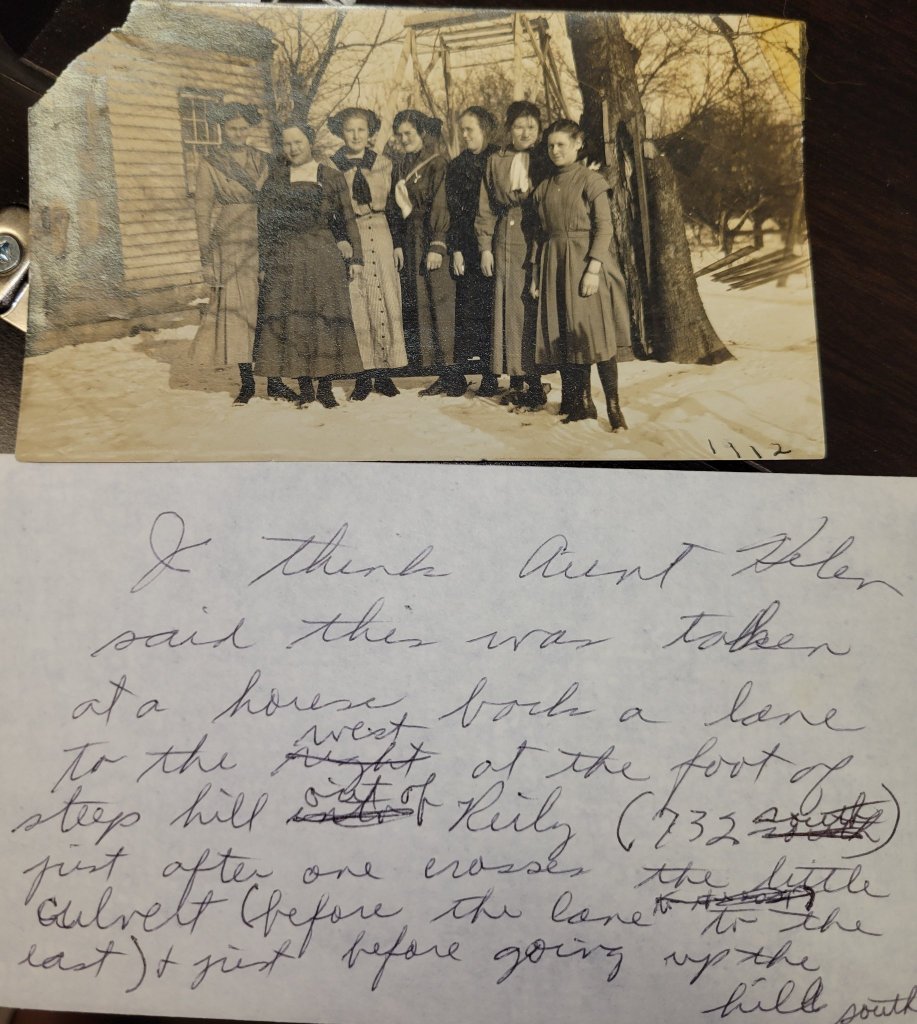 1912
I think Aunt Helen
said this was taken
at a house back a lane
west
to the right at the foot of
out of
steep hill into Reily (732 south)
just after one crosses the little
culvert (before the lane to the
east) & just before going up the
hill south